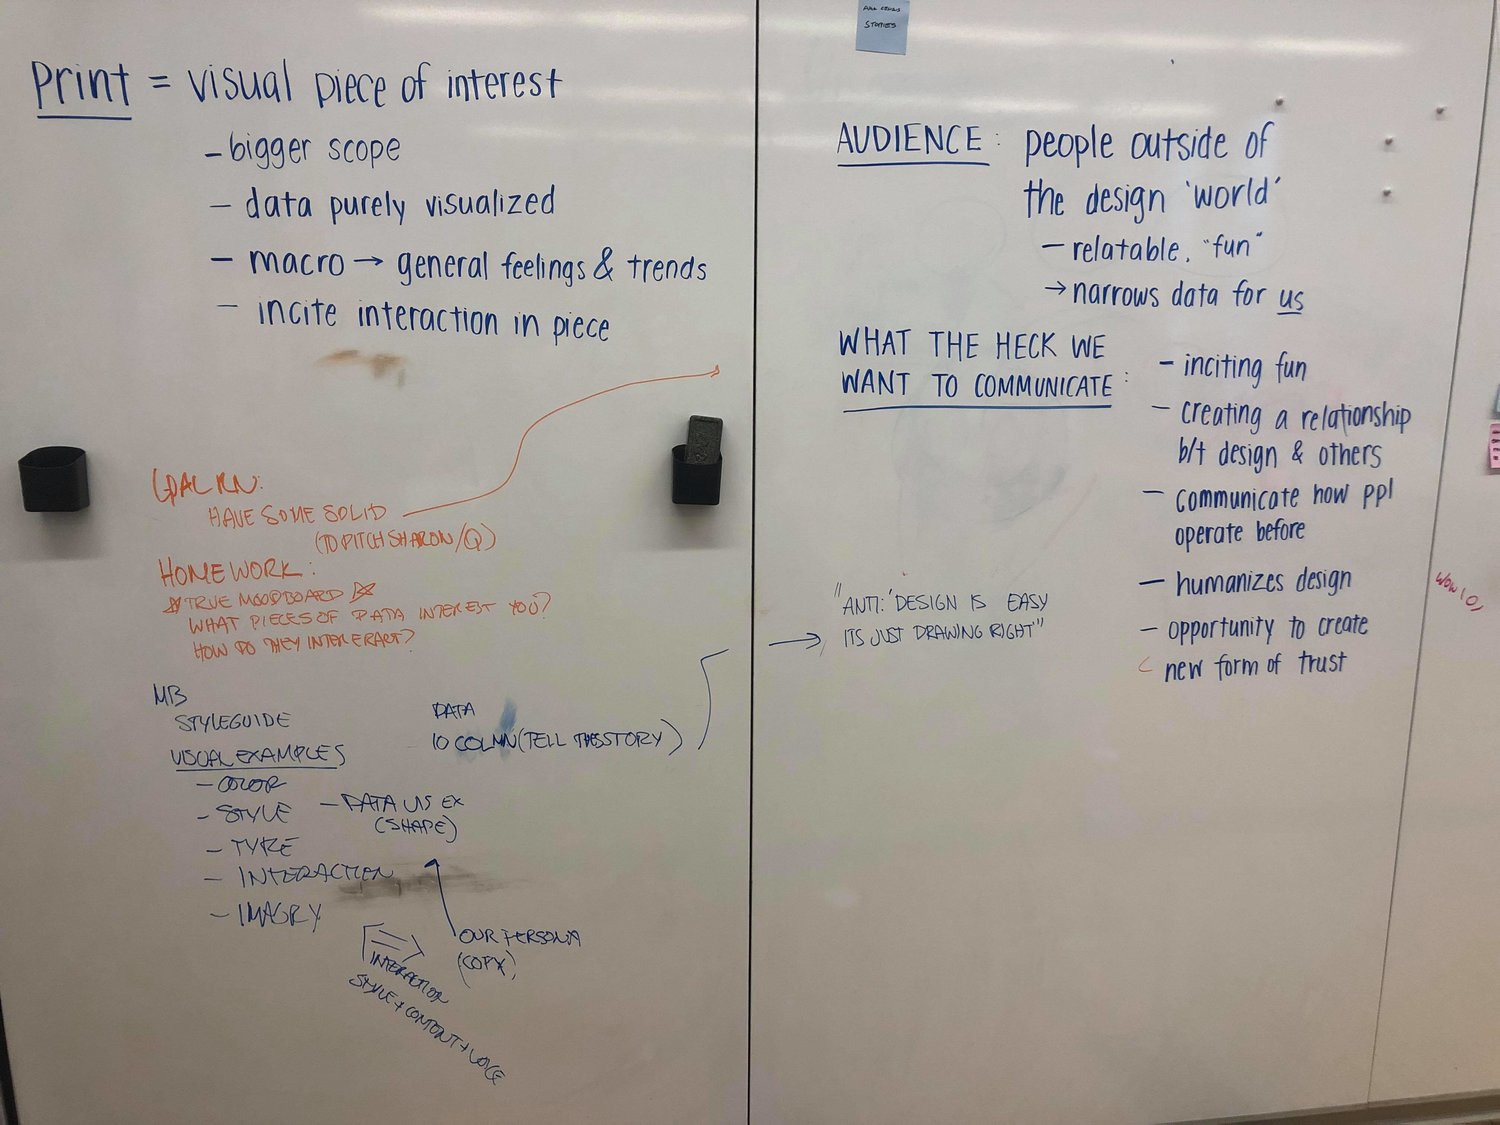 Print = visual piece of interest
- bigger scope
- data purely visualized
- macro → general feelings & trends
- incite interaction in piece
GOAL RN:
HAVE SOME SOLID
(TO PITCH SHARON/Q)
HOMEWORK:
TRUE MOODBOARD
WHAT PIECES OF DATA INTEREST YOU?
HOW DO THEY INTERERACT?
MB
STYLEGUIDE
VISUAL EXAMPLES
- COLOR
- STYLE
- TYPE
- INTERACTION
- IMAGRY
- DATA VIS EX
(SHAPE)
DATA
10 COLMN (TELL THE STORY)
OUR PERSONA
(COPY)
INTERACTION
STYLE + CONTENT + VOICE
STORIES
AUDIENCE: people outside of
the design 'world'
- relatable, "fun"
→ narrows data for us
WHAT THE HECK WE
WANT TO COMMUNICATE:
- inciting fun
- creating a relationship
b/t design & others
- communicate how ppl
operate before
- humanizes design
- opportunity to create
new form of trust
"ANTI: 'DESIGN IS EASY
ITS JUST DRAWING RIGHT"